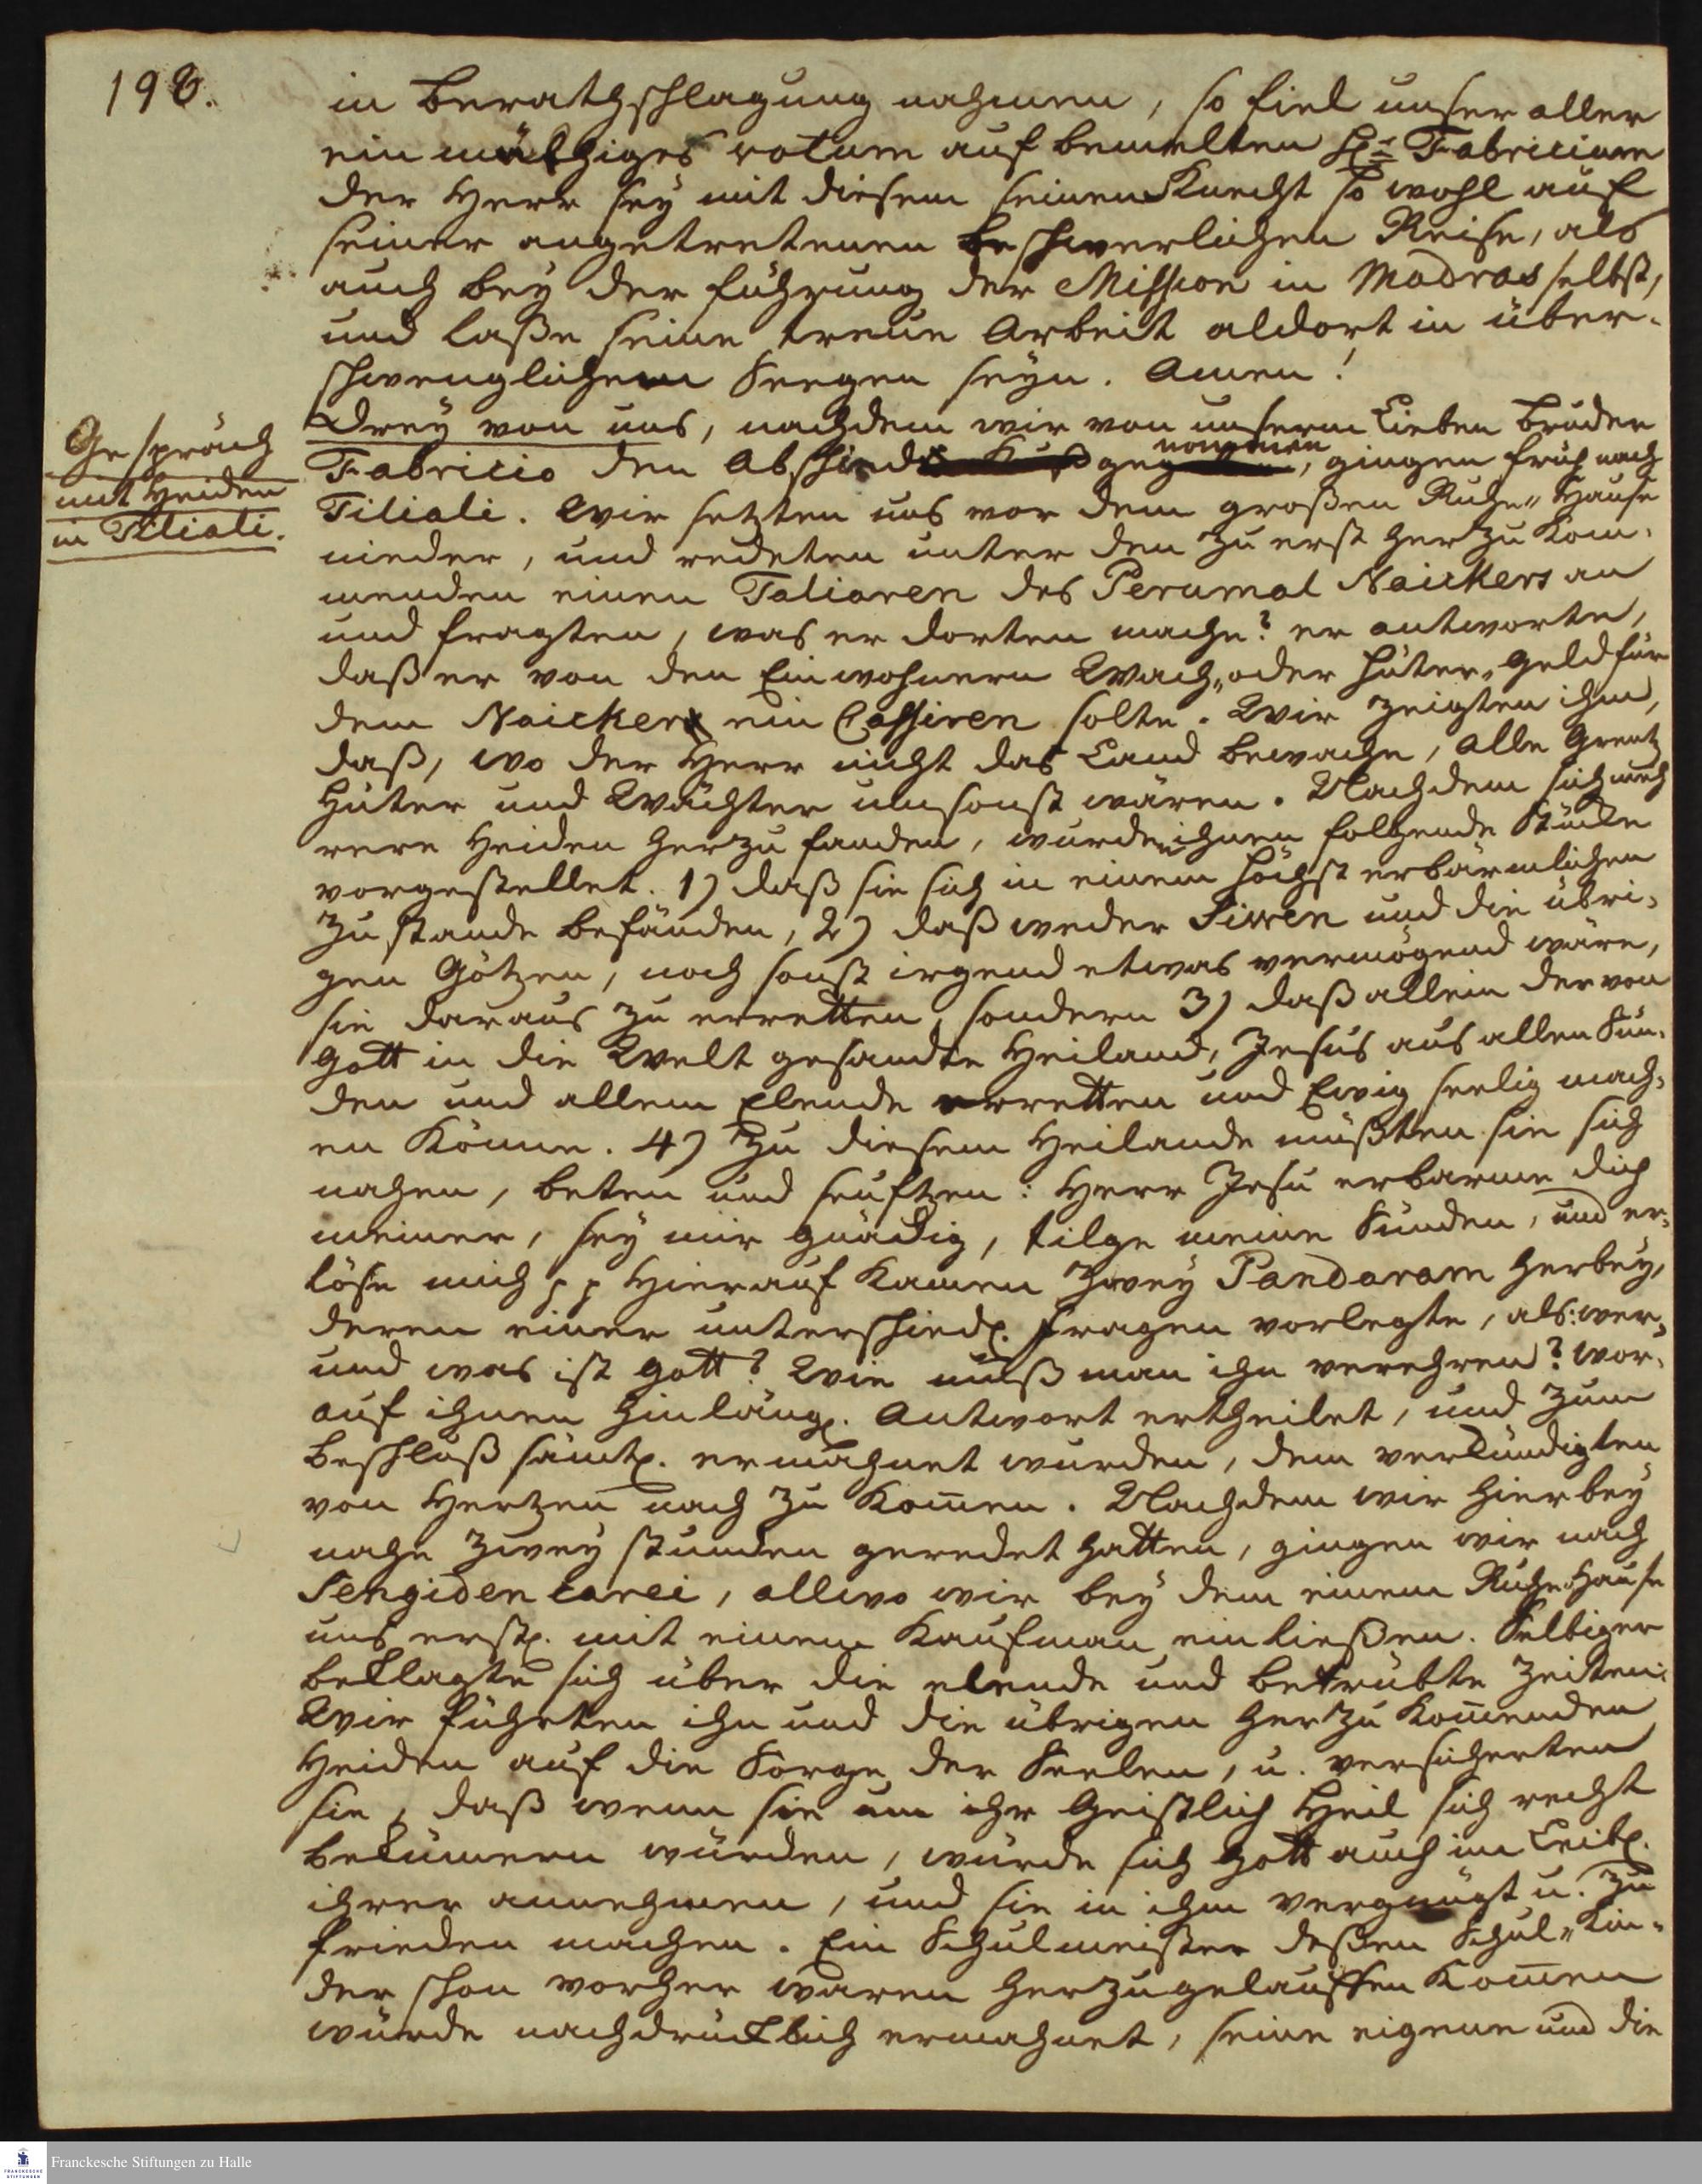 198.
in Berathschlagung nahmen, so fiel unser aller
ein müthiges votum auf bemelten H.= Fabricium
der Herr sey mit diesem seinem Knecht so wohl auf
seiner angetretenen beschwerlichen Reise, als
auch bey der führung der Mission in Madras selbst,
und laße seine treue Arbeit aldort in über-
schwenglichem Seegen seyn. Amen!
Gespräch
mit Heiden
in Tiliali.
Drey von uns, nachdem wir von unserm Lieben bruder
Fabricio den Abschied genommen, gingen früh nach
Tiliali. Wir setzten uns vor dem großen Ruhe„Hause
nieder, und redeten unter den zu erst herzu kom-
menden einen Taliaren des Perumal Naickers an
und fragten, was er dorten mache? er antworte,
daß er von den Einwohnern Wach„oder hüter„geld für
dem Naicker ein Cassiren solte. Wir zeigten ihm,
daß, wo der Herr nicht das Land bewache, alle Grentz
hüter und Wächter umsonst wären. Nachdem sich meh
rere Heiden herzu fanden, wurden ihnen folgende Stücke
vorgestellet. 1) daß sie sich in einem höchst erbärmlichen
Zustande befänden, 2) daß weder Siwen und die übri-
gen Götzen, noch sonst irgend etwas vermögend wäre,
sie daraus zu erretten, sondern 3) daß allein der von
Gott in die Welt gesandte Heiland, Jesus aus allen Sün-
den und allem Elende erretten und Ewig seelig mach-
en könne. 4) Zu diesem Heilande müßten sie sich
nahen, beten und seuftzen: Herr Jesu erbarme dich
meiner, sey mir gnädig, tilge meine Sünden, und er-
löse mich pp Hierauf kamen zwey Pandaram herbey,
deren einer unterschiedl. fragen vorlegte, als: wer„
und was ist gott? Wie muß man ihn verehren? wor-
auf ihnen hinlängl. Antwort ertheilet, und zum
beschluß sämtl. ermahnet wurden, dem verkündigten
von Hertzen nach zu kom̄en. Nachdem wir hier bey
nahe zwey stunden geredet hatten, gingen wir nach
Sengidencarei, allwo wir bey dem einem Ruhe-Hause
uns erstl. mit einem Kaufman einließen. Selbiger
beklagte sich über die elende und betrübte Zeiten.
Wir führten ihn und die übrigen herzu kom̄enden
Heiden auf die Sorge der Seelen, u. versicherten
sie, daß wenn sie um ihr geistlich Heil sich recht
bekümern würden, würde sich Gott auch im Leibl.
ihrer annehmen, und sie in ihm vergnügt u. zu
frieden machen. Ein Schulmeister deßen Schul„kin-
der schon vorher waren herzugelauffen kom̄en
wurde nachdrücklich ermahnet, seine eigene und die
Franckesche Stiftungen zu Halle